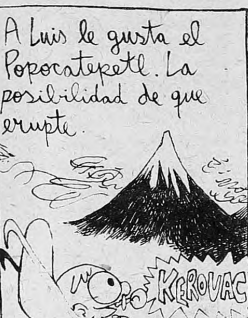 A Luis le gusta el
Popocatepetl. La
posibilidad de que
erupte.
KEROUAC